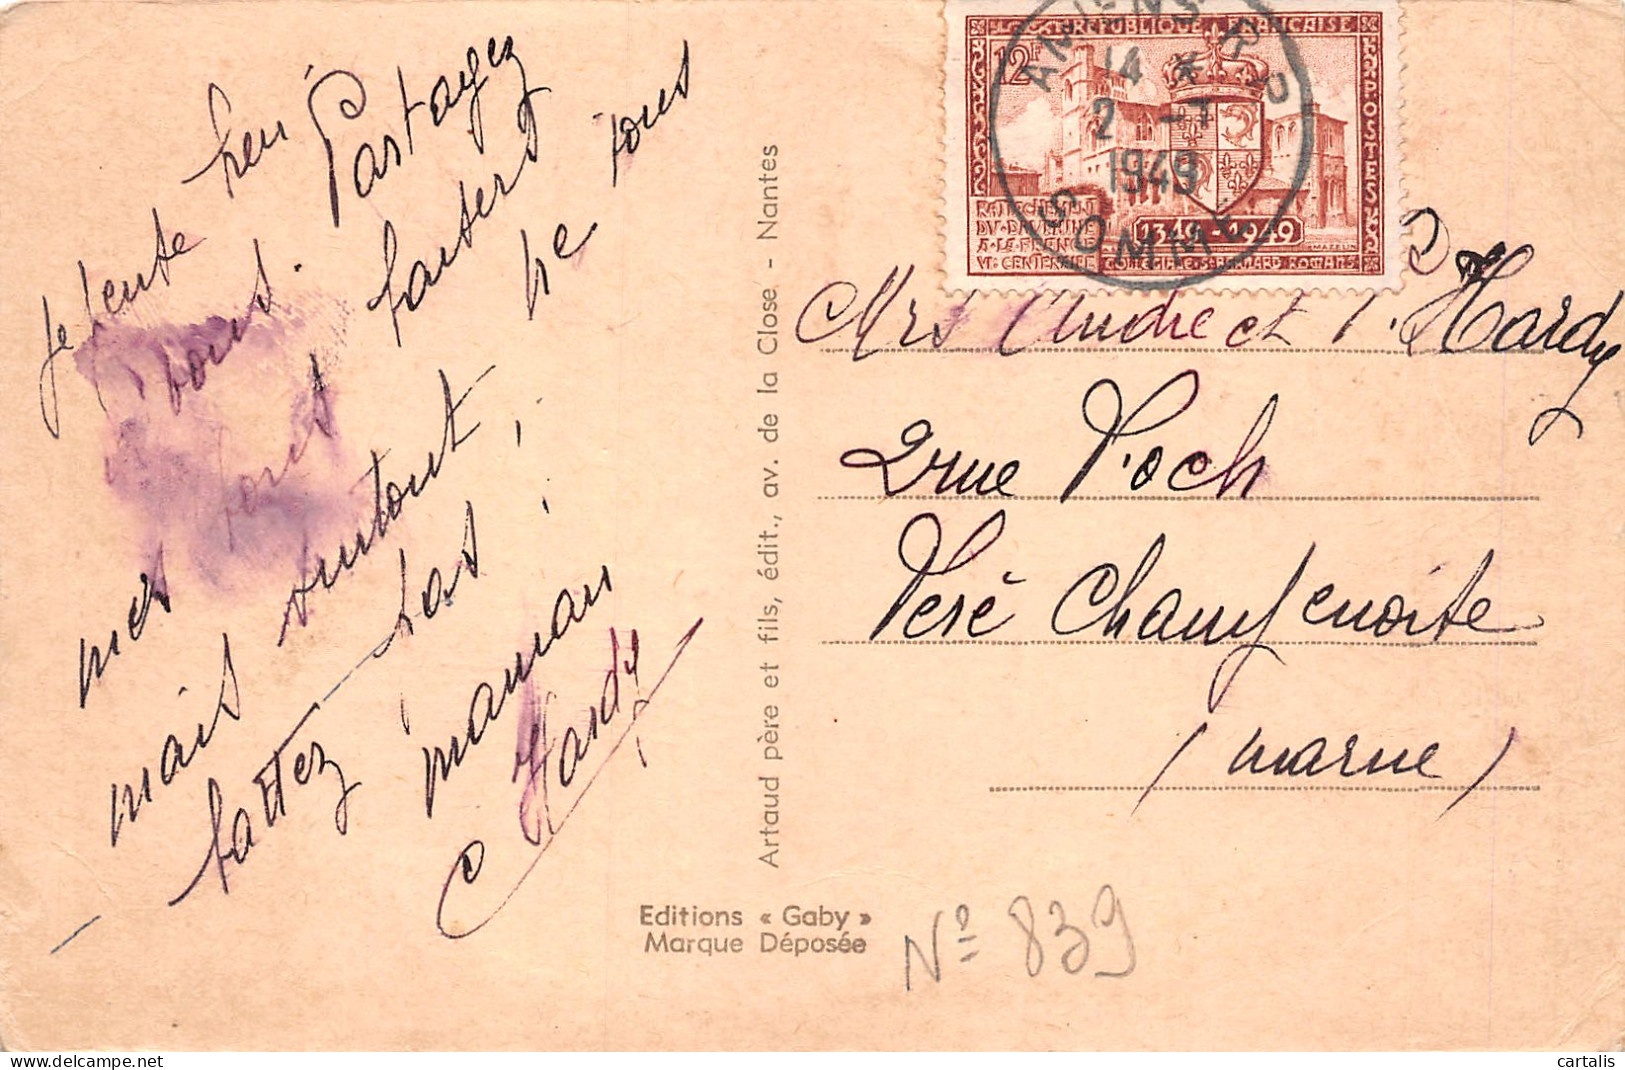 Je pense
bien
vous. Partagez
mes
tous baisers
mais surtout,
ne vous
battez pas !
maman
Hardy
Artaud père et fils, édit., av. de la Close - Nantes
Editions « Gaby »
Marque Déposée
RÉPUBLIQUE FRANÇAISE
12F
POSTES
RATTACHEMENT
DU DAUPHINÉ
A LA FRANCE
VIe CENTENAIRE
1349-1949
COLLÉGIALE St BERNARD ROMANS
MAZELIN
AMIENS R.P.
14 *
2 - 7
1949
SOMME
Mrs André et P. Hardy
2 rue Foch
Fère Champenoise
(Marne)
No 839
cartalis